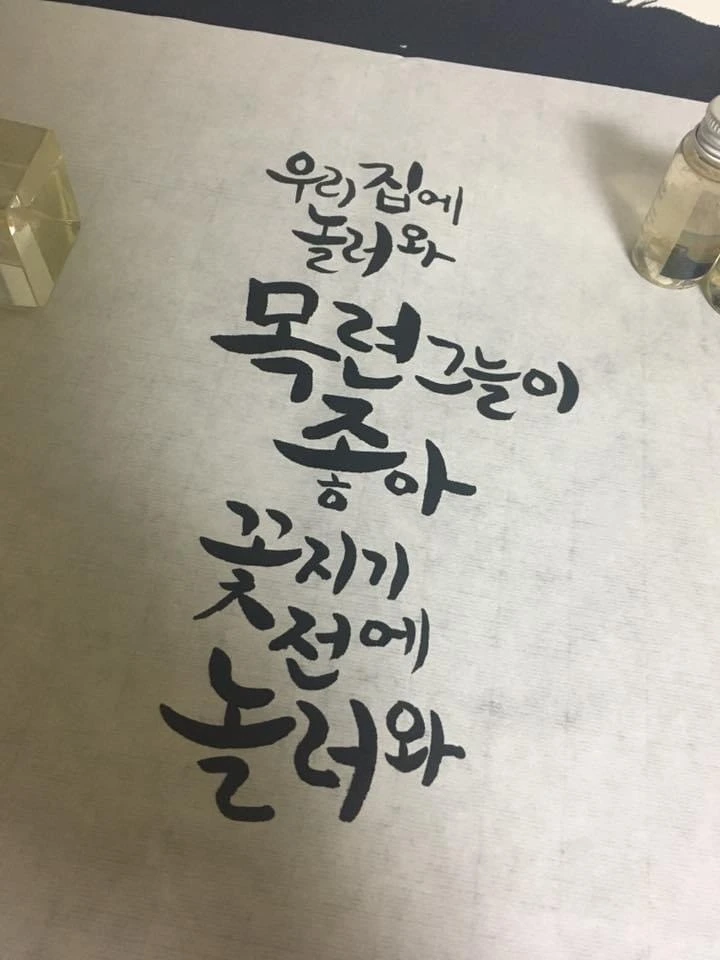 우리 집에
놀러와
목련그늘이
좋아
꽃지기
전에
놀러와